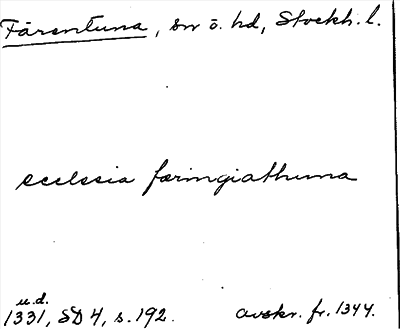 Färentuna, sn ö. hd, Stockh. l.
ecclesia færingiathuna
u.d.
1331, SD 4, s. 192. avskr. fr. 1344.